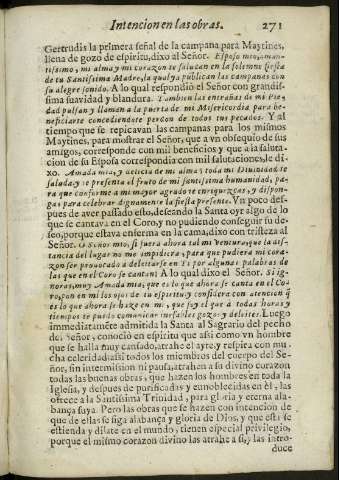 Intencion en las obras. 271
Gertrudis la primera señal de la campana para Maytines,
llena de gozo de espiritu, dixo al Señor. Esposo mio, aman-
tissimo, mi alma y mi corazon te saludan en la solemne fiesta
de tu Santissima Madre, la qual ya publican las campanas con
su alegre sonido. A lo qual respondió el Señor con grandis-
sima suavidad y blandura. Tambien las entrañas de mi Pie-
dad pulsan y llaman a la puerta de mi Misericordia para be-
neficiarte concediendote perdon de todos tus pecados. Y al
tiempo que se repicavan las campanas para los mismos
Maytines, para mostrar el Señor, que a vn obsequio de sus
amigos, corresponde con mil beneficios y que a la saluta-
cion de su Esposa correspondia con mil salutaciones, le di-
xo. Amada mia, y delicia de mi alma, toda mi Divinidad te
saluda y te presenta el fruto de mi santissima humanidad, pa-
ra que conforme a mi mayor agrado te enriquezcas, y dispon-
gas para celebrar dignamente la fiesta presente. Vn poco des-
pues de aver passado esto, deseando la Santa oyr algo de lo
que se cantava en el Coro, y no pudiendo conseguir su de-
seo, porque estava enferma en la cama, dixo con tristeza al
Señor. O Señor mio, si fuera ahora tal mi ventura, que la dis-
tancia del lugar no me impidiera, para que pudiera mi cora-
zon ser provocado a deleitarse en Ti por algunas palabras de
las que en el Coro se cantan! A lo qual dixo el Señor. Si ig-
noras, muy Amada mia, que es lo que ahora se canta en el Co-
ro, pon en mi los ojos de tu espiritu y considera con atencion q
es lo que ahora se haze en mi, que soy el que à todas horas y
tiempos te puedo comunicar inefables gozos y deleites. Luego
immediatamẽte admitida la Santa al Sagrario del pecho
del Señor, conoció en espiritu que asi como vn hombre
que se halla muy cansado, atrahe el ayre y respira con mu-
cha celeridad, assi todos los miembros del cuerpo del Se-
ñor, sin intermission ni pausa, atrahen a su divino corazon
todas las buenas obras, que hazen los hombres en toda la
Iglesia, y despues de purificadas y ennoblecidas en èl, las
ofrece a la Santissima Trinidad, para gloria y eterna ala-
bança suya. Pero las obras que se hazen con intencion de
que de ellas se siga alabança y gloria de Dios, y que esta se
estienda y dilate en el mundo, tienen especial privilegio,
porque el mismo corazon divino las atrahe a si, y las intro-
duce